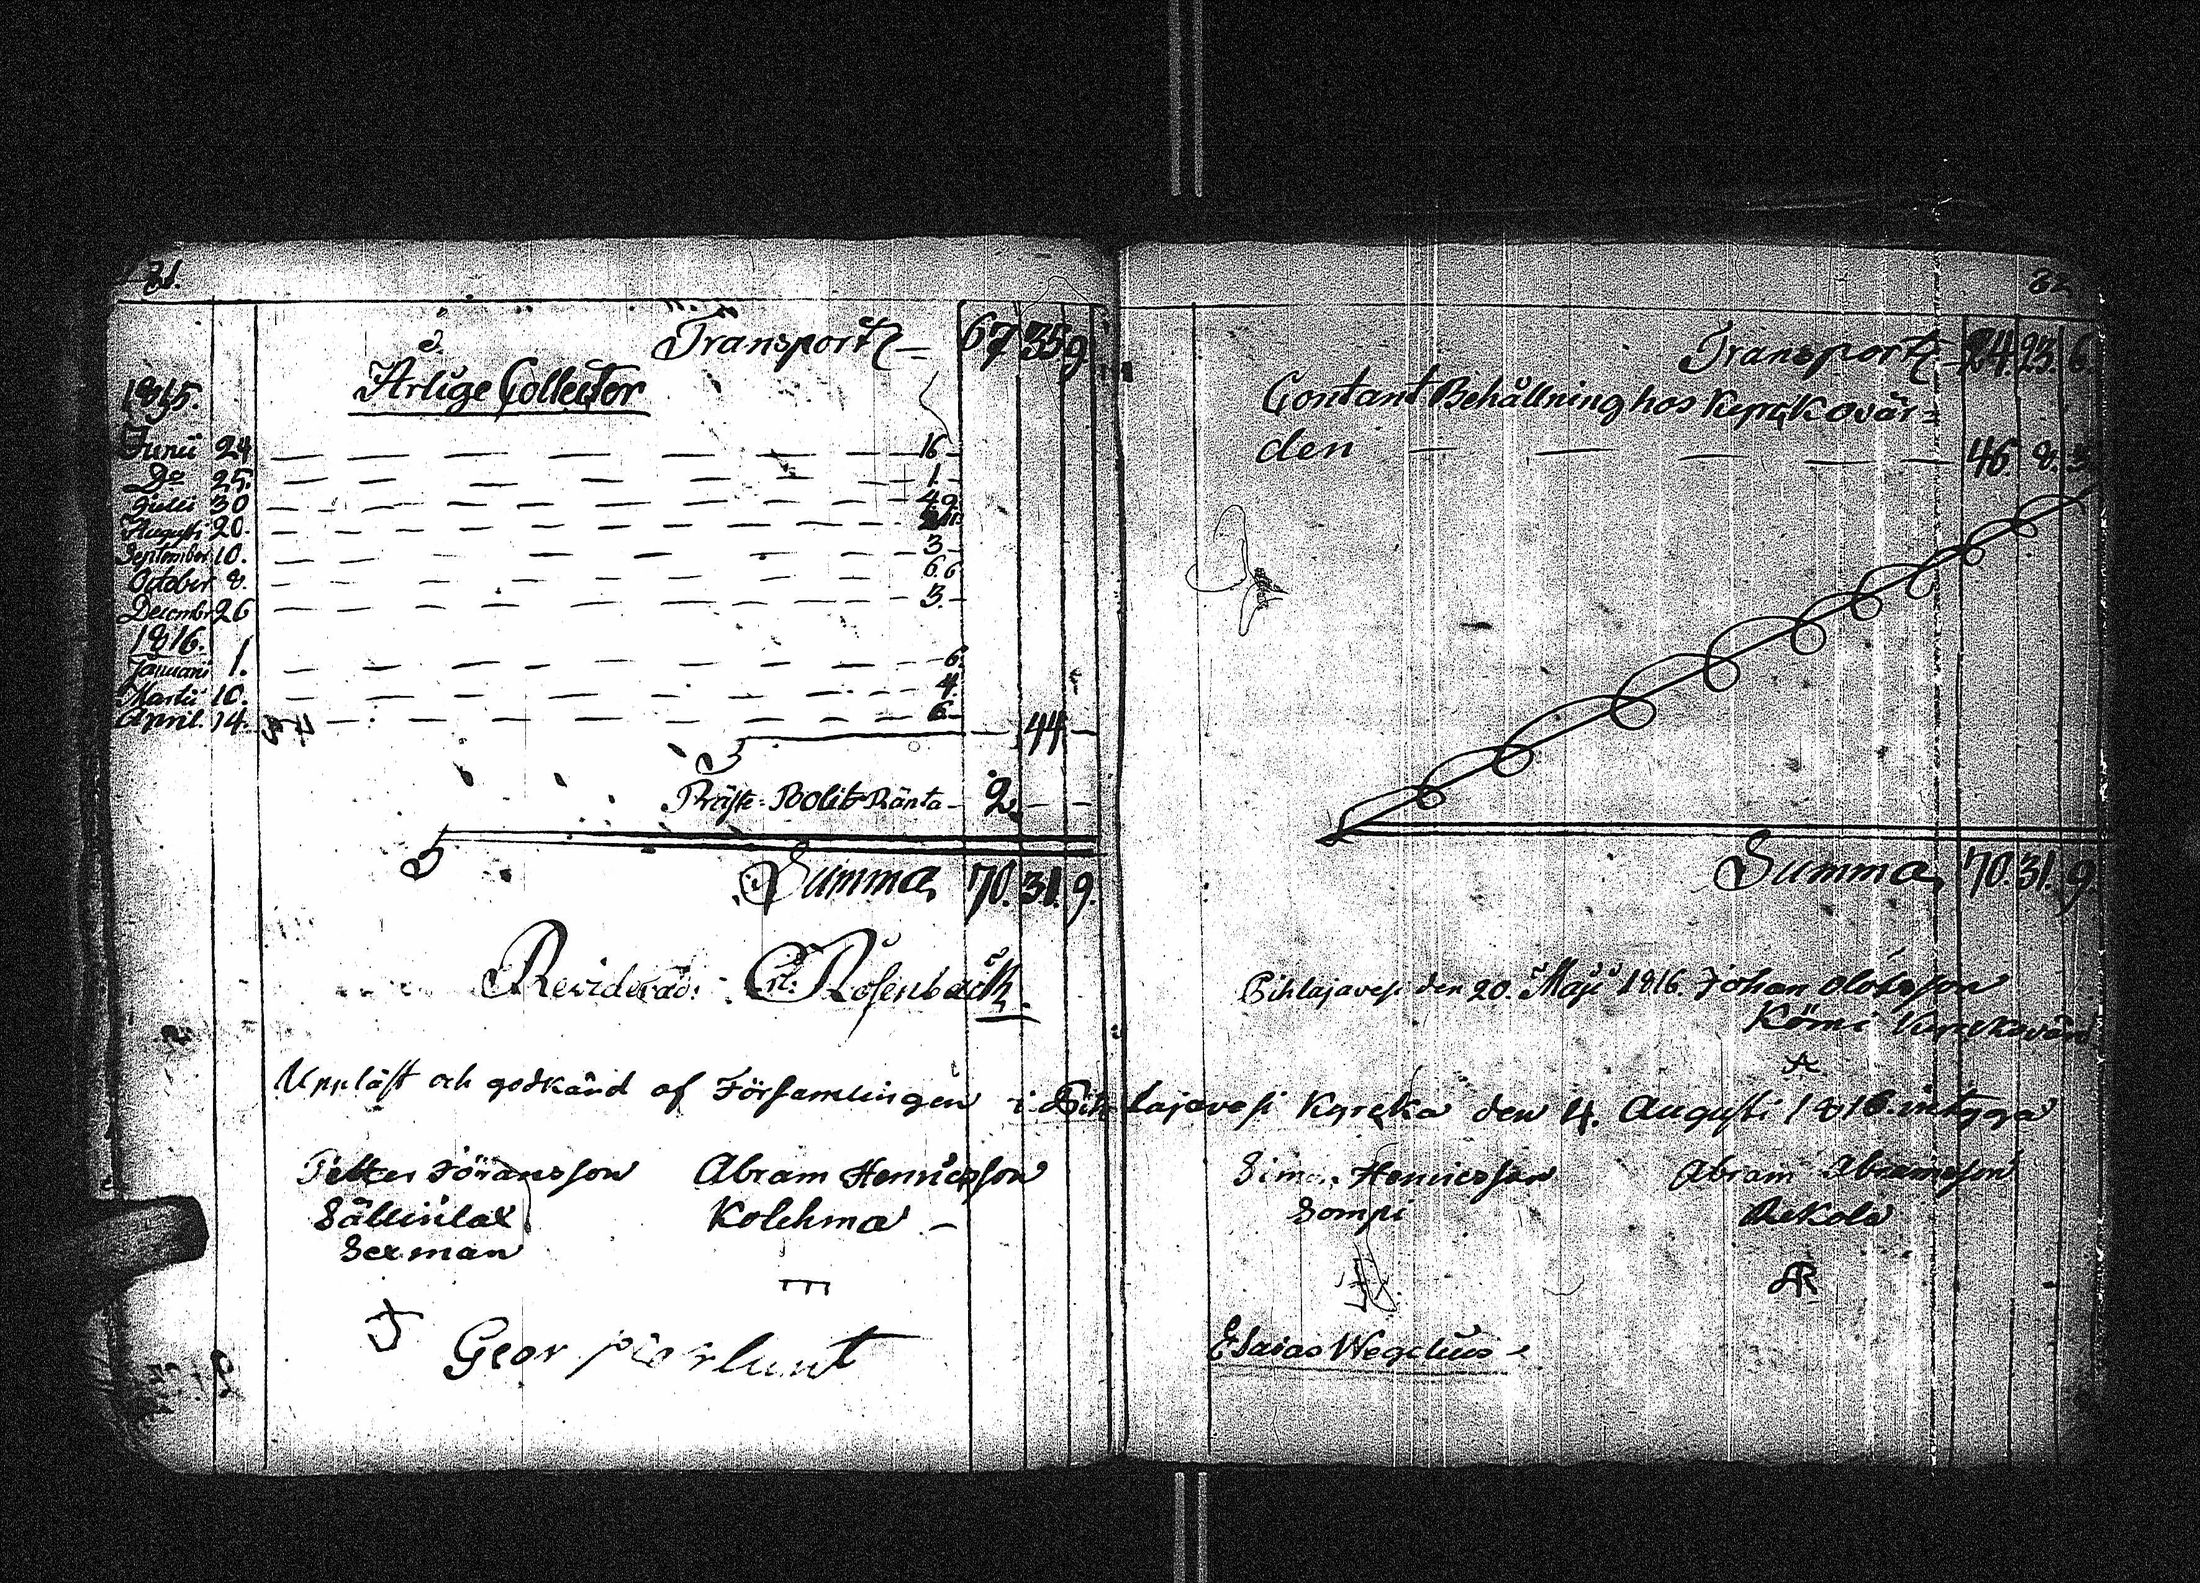 81.
Transport — 67 35 9
Årlige Collecter
1815.
Junii 24 16 -
Do 25. 1. -
Julii 30 4. 9.
Augusti 20.
September 10. 3 -
October 8. 6. 6
Decembr 26 3. -
1816.
Januari 1. 6.
Martii 10. 4.
April. 14. 6 - 44 -
Präste-Bolets Ränta - 2. - -
Summa 70. 31. 9.
Reviderad: Rosenback
Uppläst och godkänd af Församlingen i Pihlajavesi Kyrcka den 4. Augusti 1816. intyga
Petter Jöransson Abram Henricsson
Sällinilax Kolehma -
Sexman
32
Transport 24. 23. 6.
Contant Behållning hos Kyrckovär=
den 46 8. 3
Summa 70. 31. 9.
Pihlajavesi den 20. Maji 1816. Johan Olofsson
Kömi Kyrckovärd
Simon Henricsson Abram Abramsson
Sompi Rekola
AR
Esaias Wegelius